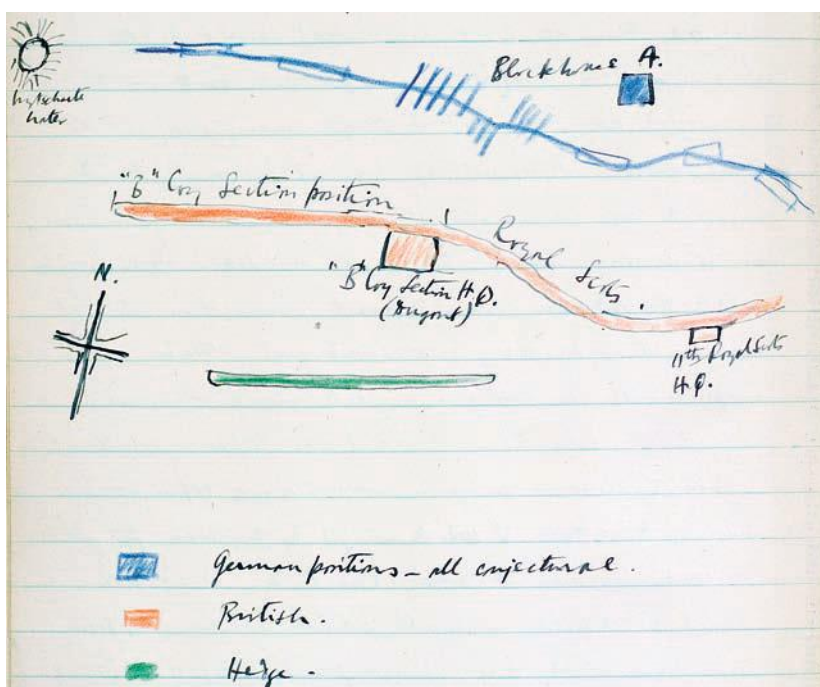 Blockhouse A.
Wytschaete
Crater
"B" Coy Section position
Royal Scots.
N.
"B" Coy Section H.Q.
(Dugout)
11th Royal Scots
H.Q.
German positions - all conjectural.
British.
Hedge -